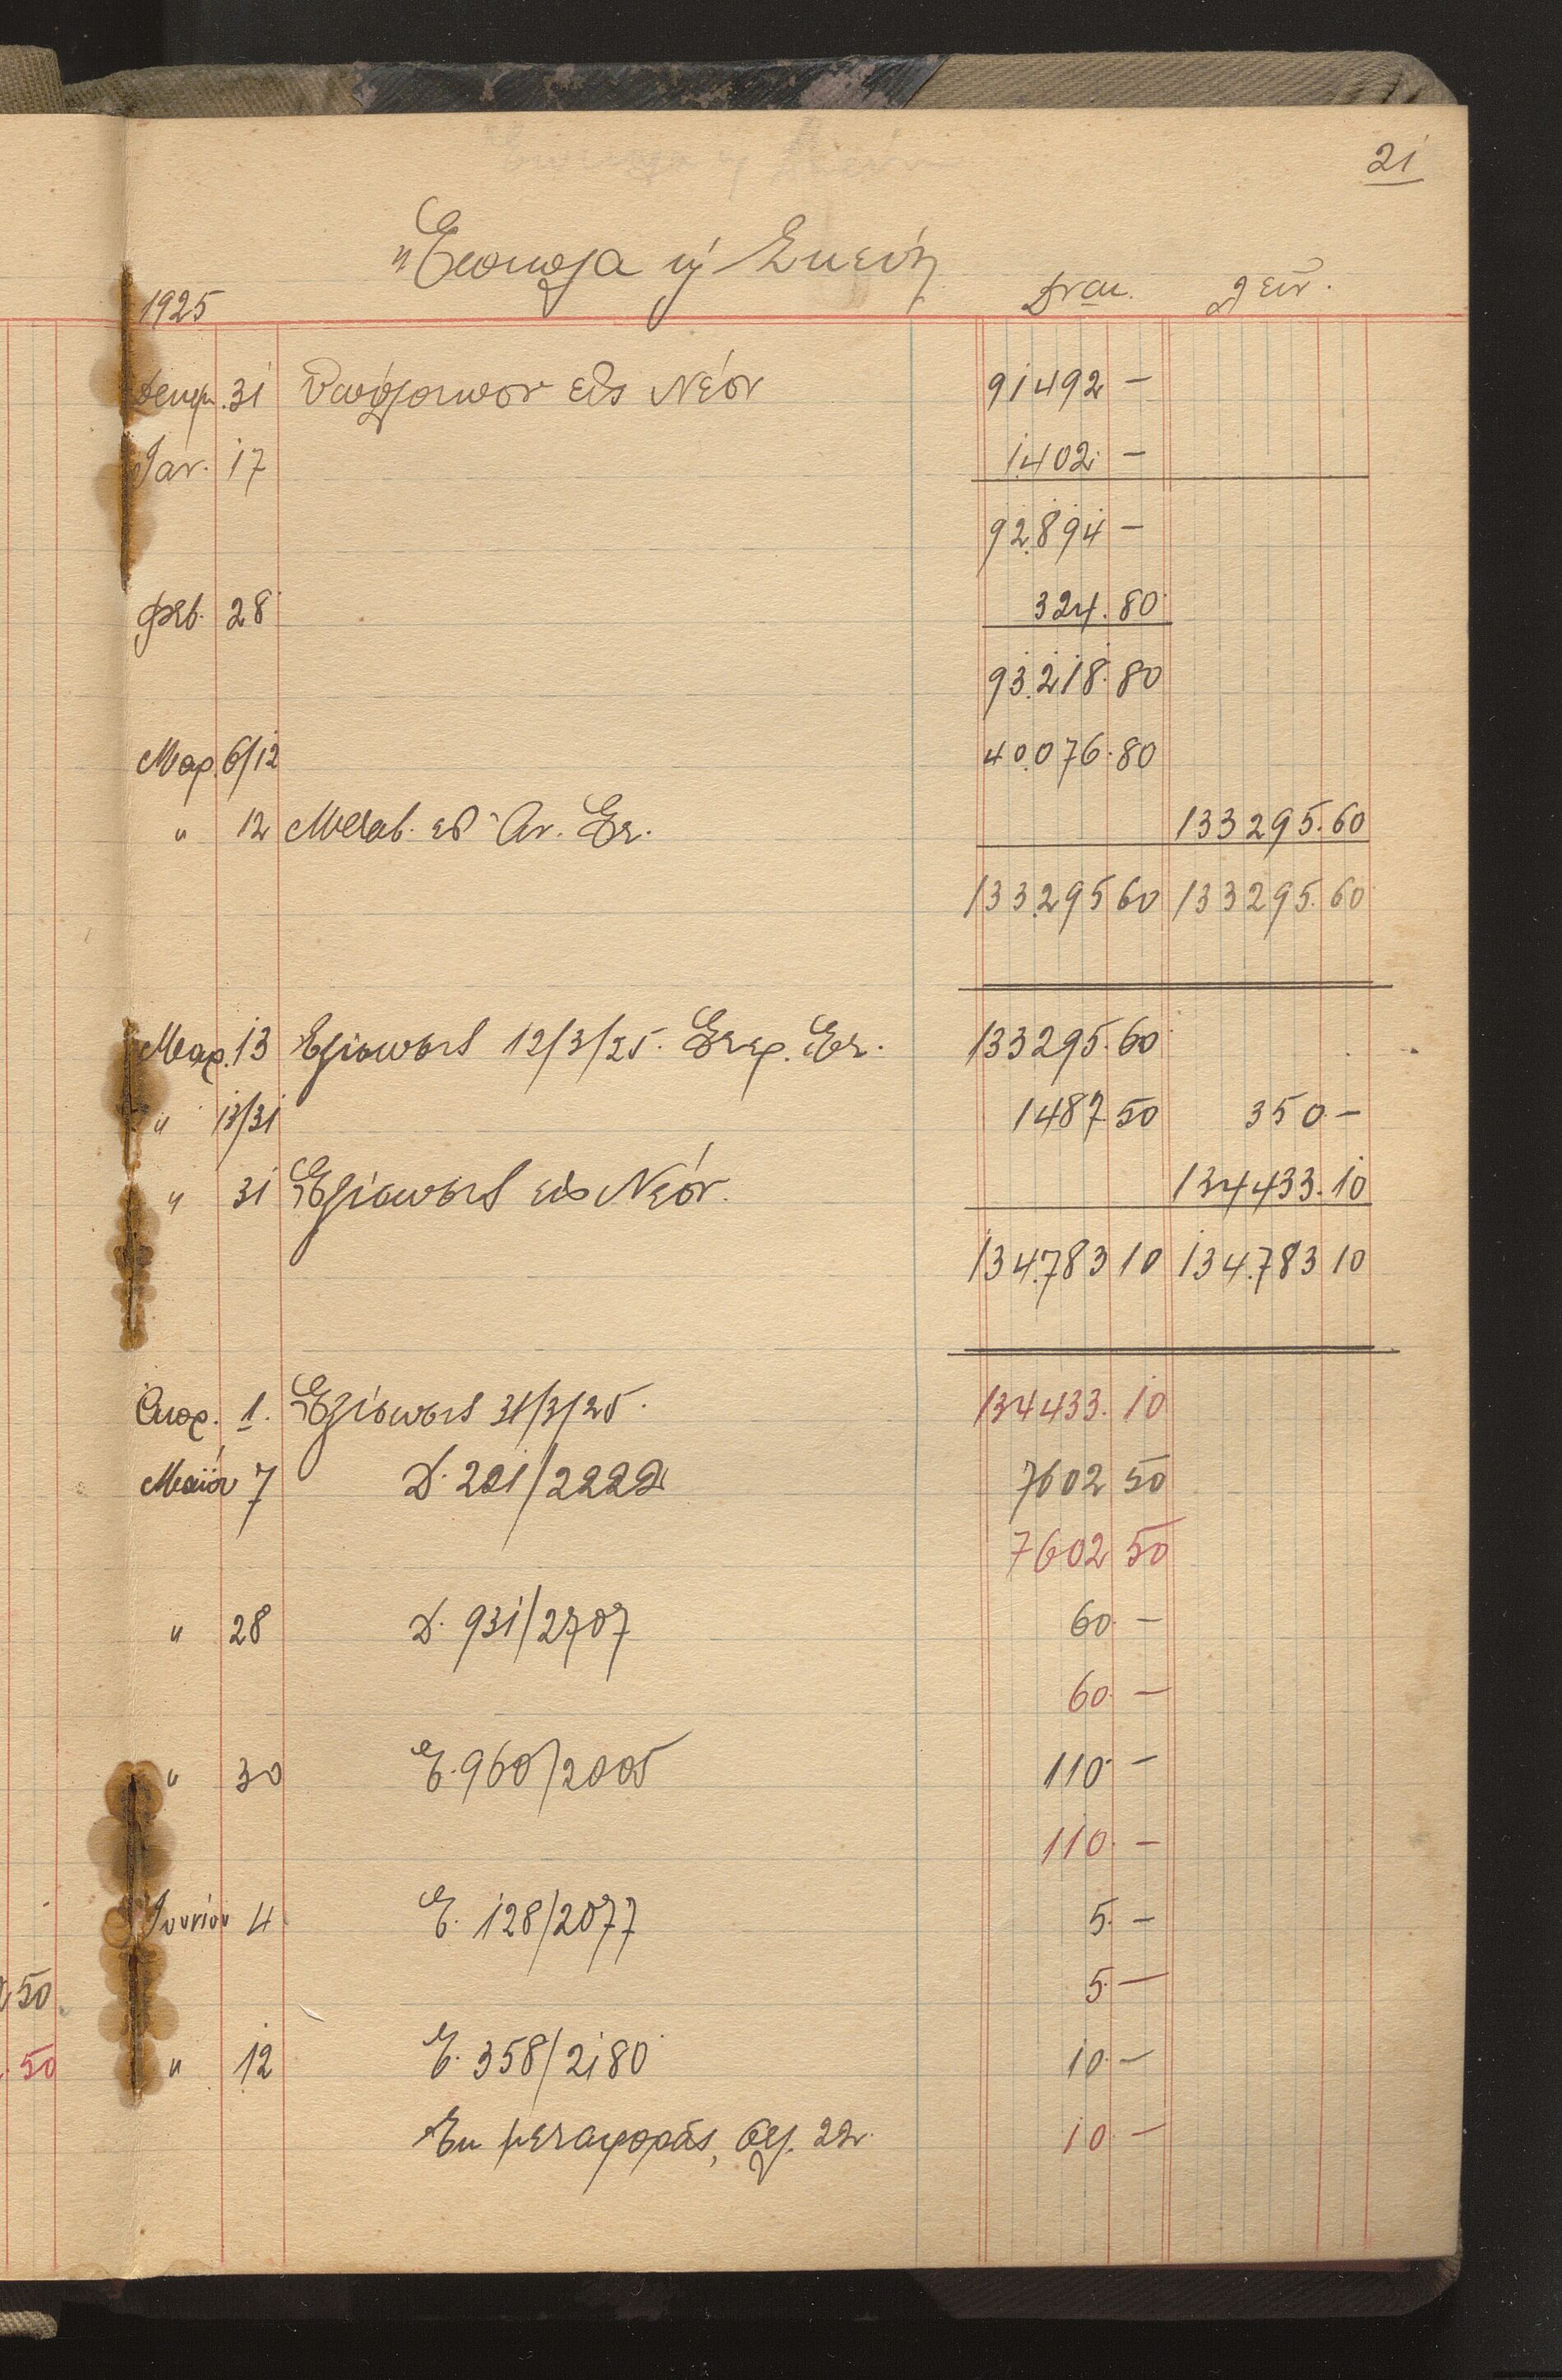 21
Ἔπιπλα ἢ Σκεύη
1925
Δοῦν. Λαβεῖν.
Δεκμ. 31 Ὑπόλοιπον εἰς Νέον 91492 —
Ἰαν. 17 1402 —
92.894 —
Φεβ. 28 324.80
93.218.80
Μαρ. 6/12 40.076.80
" 12 Μεταβ. 133295.60
133.29560 133295.60
Μαρ. 13 Ἐξίσωσις 12/3/25. 133295.60
" 13/31 1487.50 350.—
" 31 Ἐξίσωσις εἰς Νέον. 134433.10
134.783 10 134.783 10
Ἀπρ. 1. Ἐξίσωσις 31/3/25. 134433.10
Μαΐου 7 Δ. 221/2222 7602 50
7602 50
" 28 Δ. 931/2707 60 —
60 —
" 30 Ε. 960/2005 110 —
110 —
Ἰουνίου 4 Ε. 128/2077 5 —
5 —
50
" 12 Ε. 358/2180 10 —
50
Ἐκ μεταφορᾶς, σελ. 22. 10 —